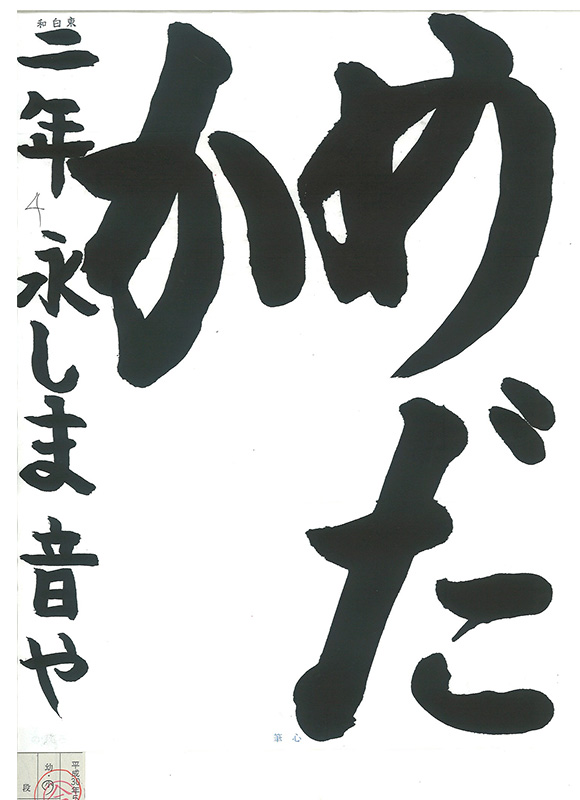 めだ
か
和白東
二年 永しま 音や
4
筆心
平成30年
幼・小
段